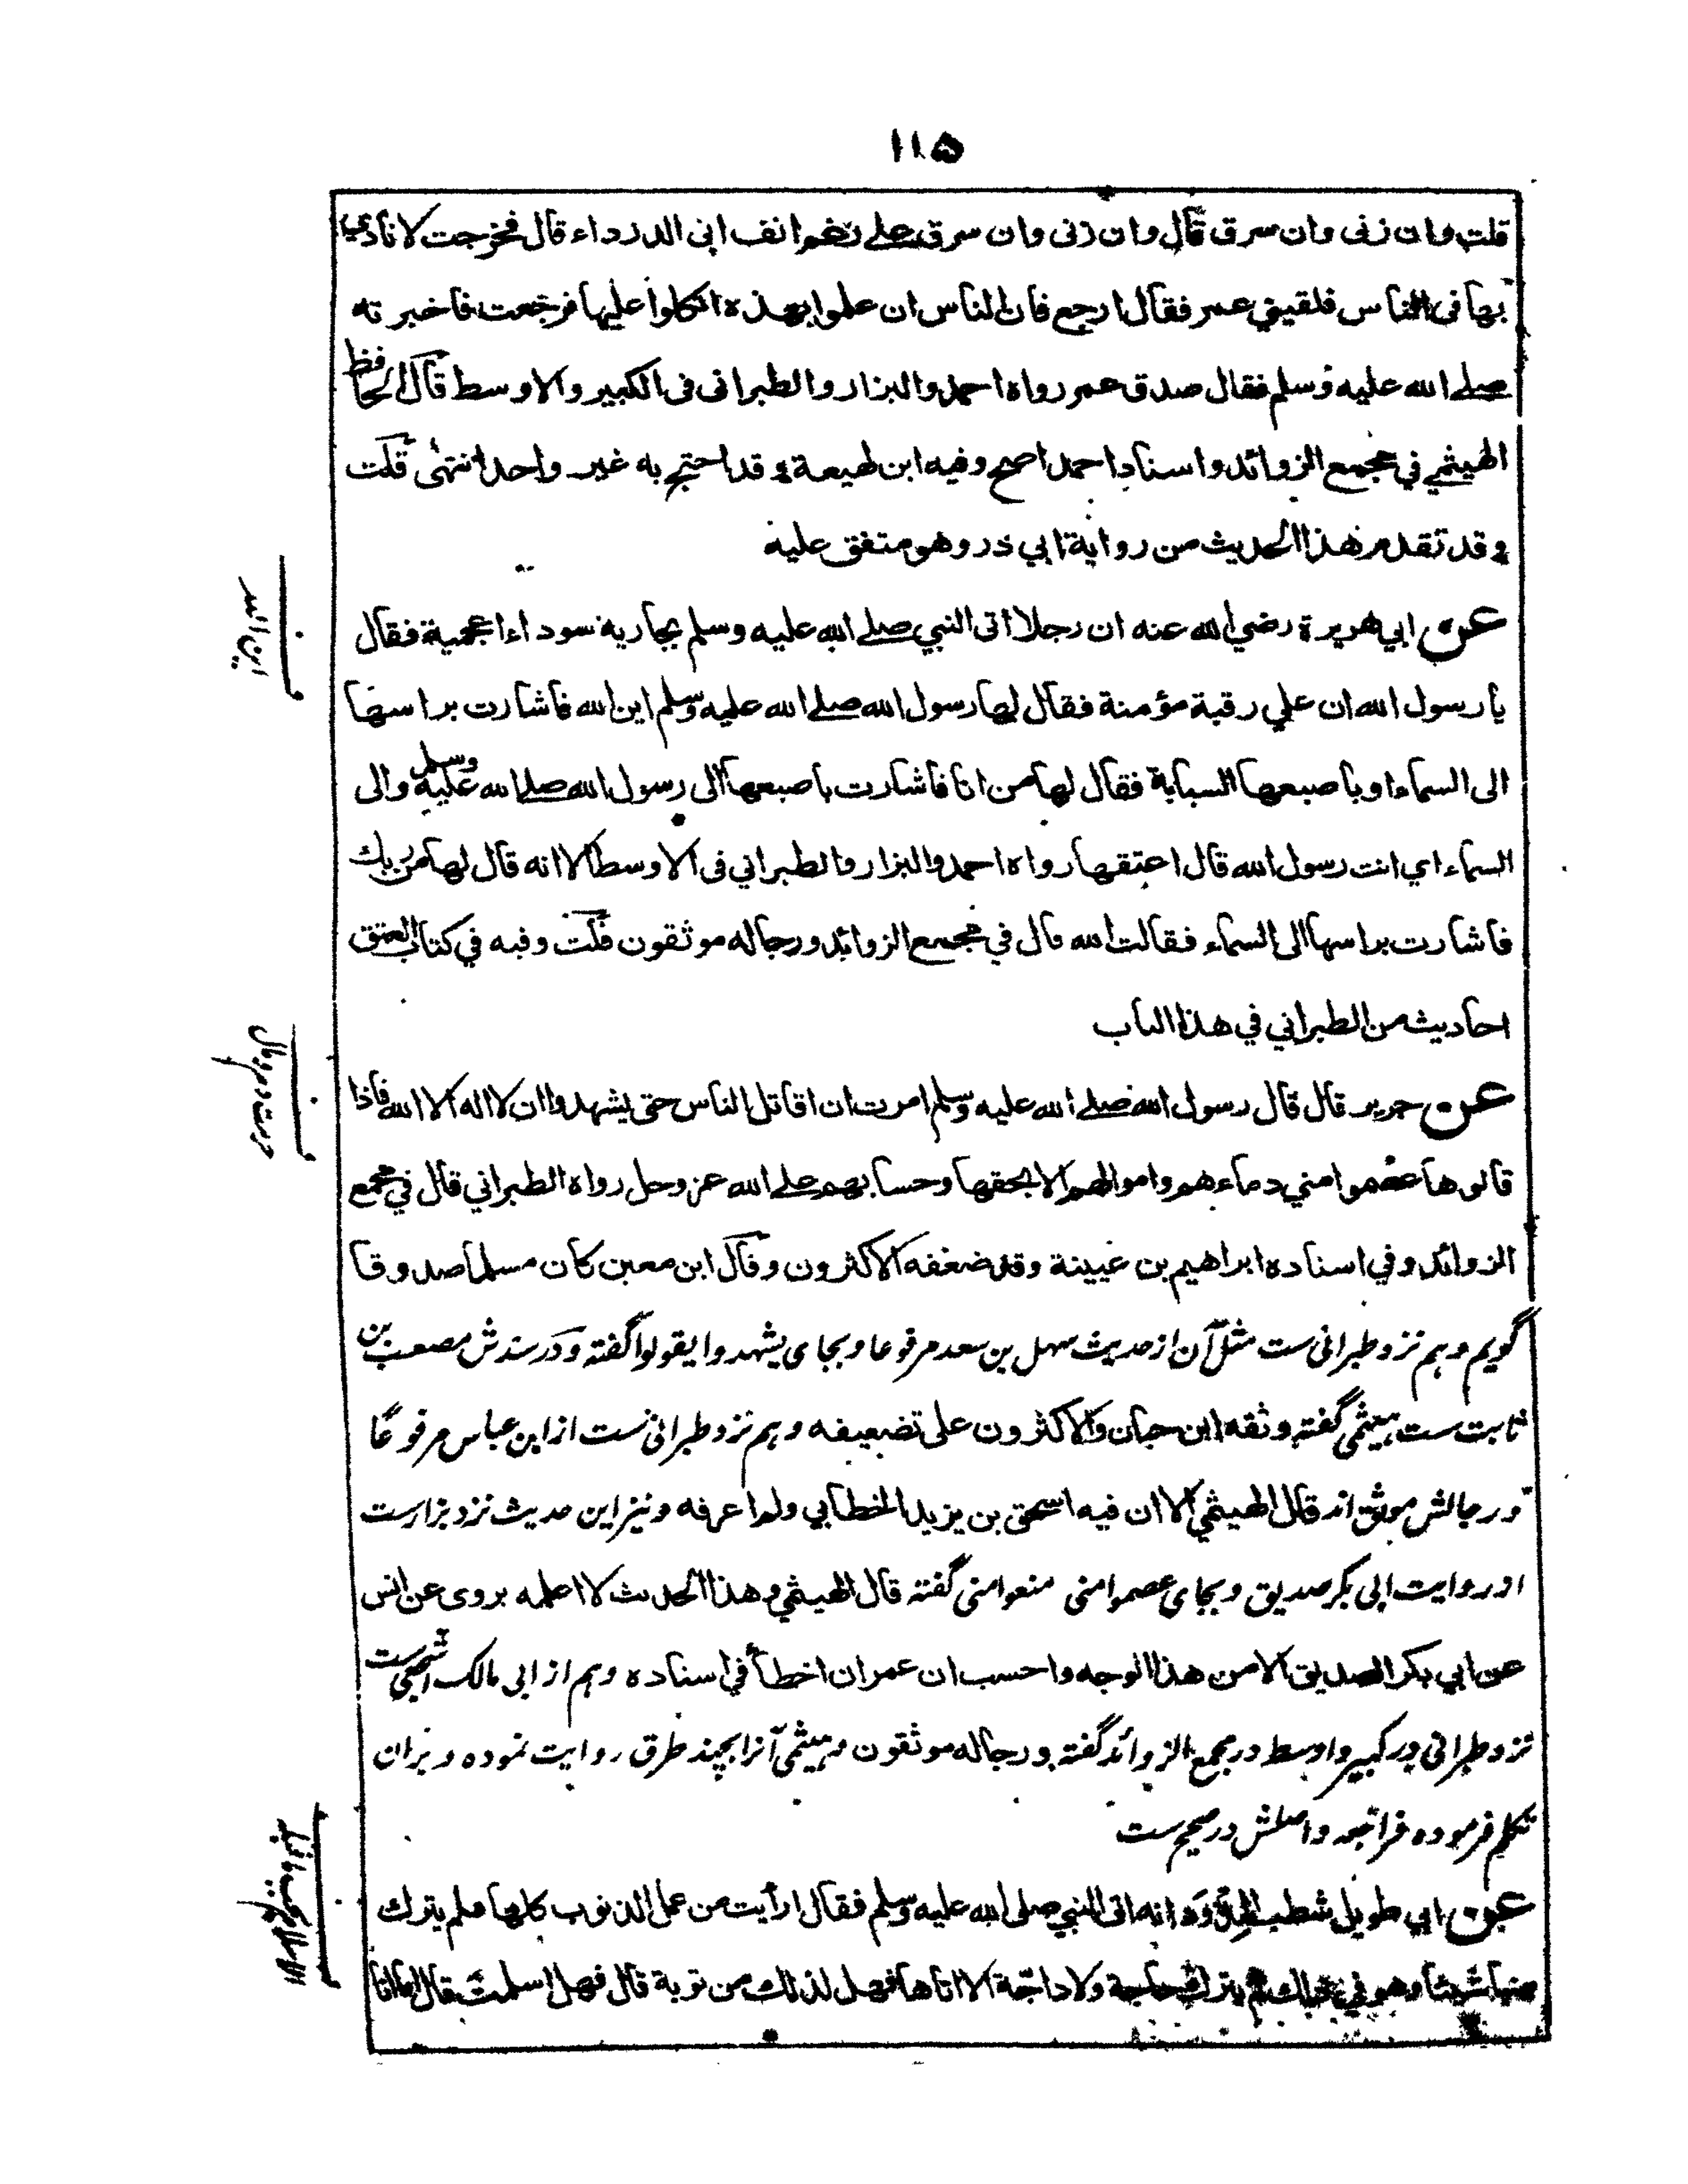 ١١۵
قلت وان زنى وان سرق قال وان زنى وان سرق على رغم انف ابى الدرداء قال فخرجت لانادي
بها فى الناس فلقيني عمر فقال ارجع فان الناس ان علموا بهذه اتكلوا عليها فرجعت فاخبرته
صلے الله عليه وسلم فقال صدق عمر رواه احمد والبزار والطبرانى فى الكبير والاوسط قال الحافظ
الهيثمي في مجمع الزوائد واسناد احمد اصح وفيه ابن لهيعة وقد احتج به غير واحد انتهى قلت
وقد تقدم هذا الحديث من رواية ابي ذر وهو متفق عليه
عن ابي هريرة رضي الله عنه ان رجلا اتى النبي صلے الله عليه وسلم بجارية سوداء اعجمية فقال
يا رسول الله ان علي رقبة مؤمنة فقال لها رسول الله صلے الله عليه وسلم اين الله فاشارت براسها
الى السماء او باصبعها السبابة فقال لها من انا فاشارت باصبعها الى رسول الله صلے الله عليه وسلم والى
السماء اي انت رسول الله قال اعتقها رواه احمد والبزار والطبراني فى الاوسط الا انه قال لها من ربك
فاشارت براسها الى السماء فقالت الله قال في مجمع الزوائد ورجاله موثقون قلت وفيه في كتاب العتق
احاديث من الطبراني في هذا الباب
عن جرير قال قال رسول الله صلے الله عليه وسلم امرت ان اقاتل الناس حتى يشهدوا ان لا اله الا الله فاذا
قالوها عصموا مني دماءهم واموالهم الا بحقها وحسابهم على الله عز وجل رواه الطبراني قال في مجمع
الزوائد وفي اسناده ابراهيم بن عيينة وقد ضعفه الاكثرون وقال ابن معين كان مسلما صدوقا
گويم وہم نزد طبرانی ست مثل آن از حديث سہل بن سعد مرفوعا وبجای يشہدوا يقولوا گفتہ ودر سندش مصعب بن
ثابت ست ہيثمی گفتہ وثقه ابن حبان والاكثرون على تضعيفه وہم نزد طبرانی ست از ابن عباس مرفوعًا
ورجالش موثق اند قال الهيثمي الا ان فيه اسحق بن يزيد الخطابي ولم اعرفه ونيز اين حديث نزد بزار ست
از روايت ابی بكر صديق وبجای عصموا منی منعوا منی گفتہ قال الهيثمي وهذا الحديث لا اعلمه يروى عن انس
عن ابي بكر الصديق الا من هذا الوجه واحسب ان عمران اخطأ في اسناده وہم از ابی مالک اشجعی ست
نزد طبرانی در كبير واوسط در مجمع الزوائد گفتہ ورجاله موثقون وہيثمی آنرا بچند طرق روايت نمودہ وبران
تكلم فرمودہ فراجعہ واصلش در صحيح ست
عن ابي طويل شطب الممدود انه اتى النبي صلى الله عليه وسلم فقال ارأيت من عمل الذنوب كلها فلم يترك
منها شيئا وهو في ذلك لم يترك حاجة ولا داجة الا اتاها فهل لذلك من توبة قال فهل اسلمت قال اما انا
ف
اين الله
ف
حرمت دم ومال
الاسلام يهدم ما قبله